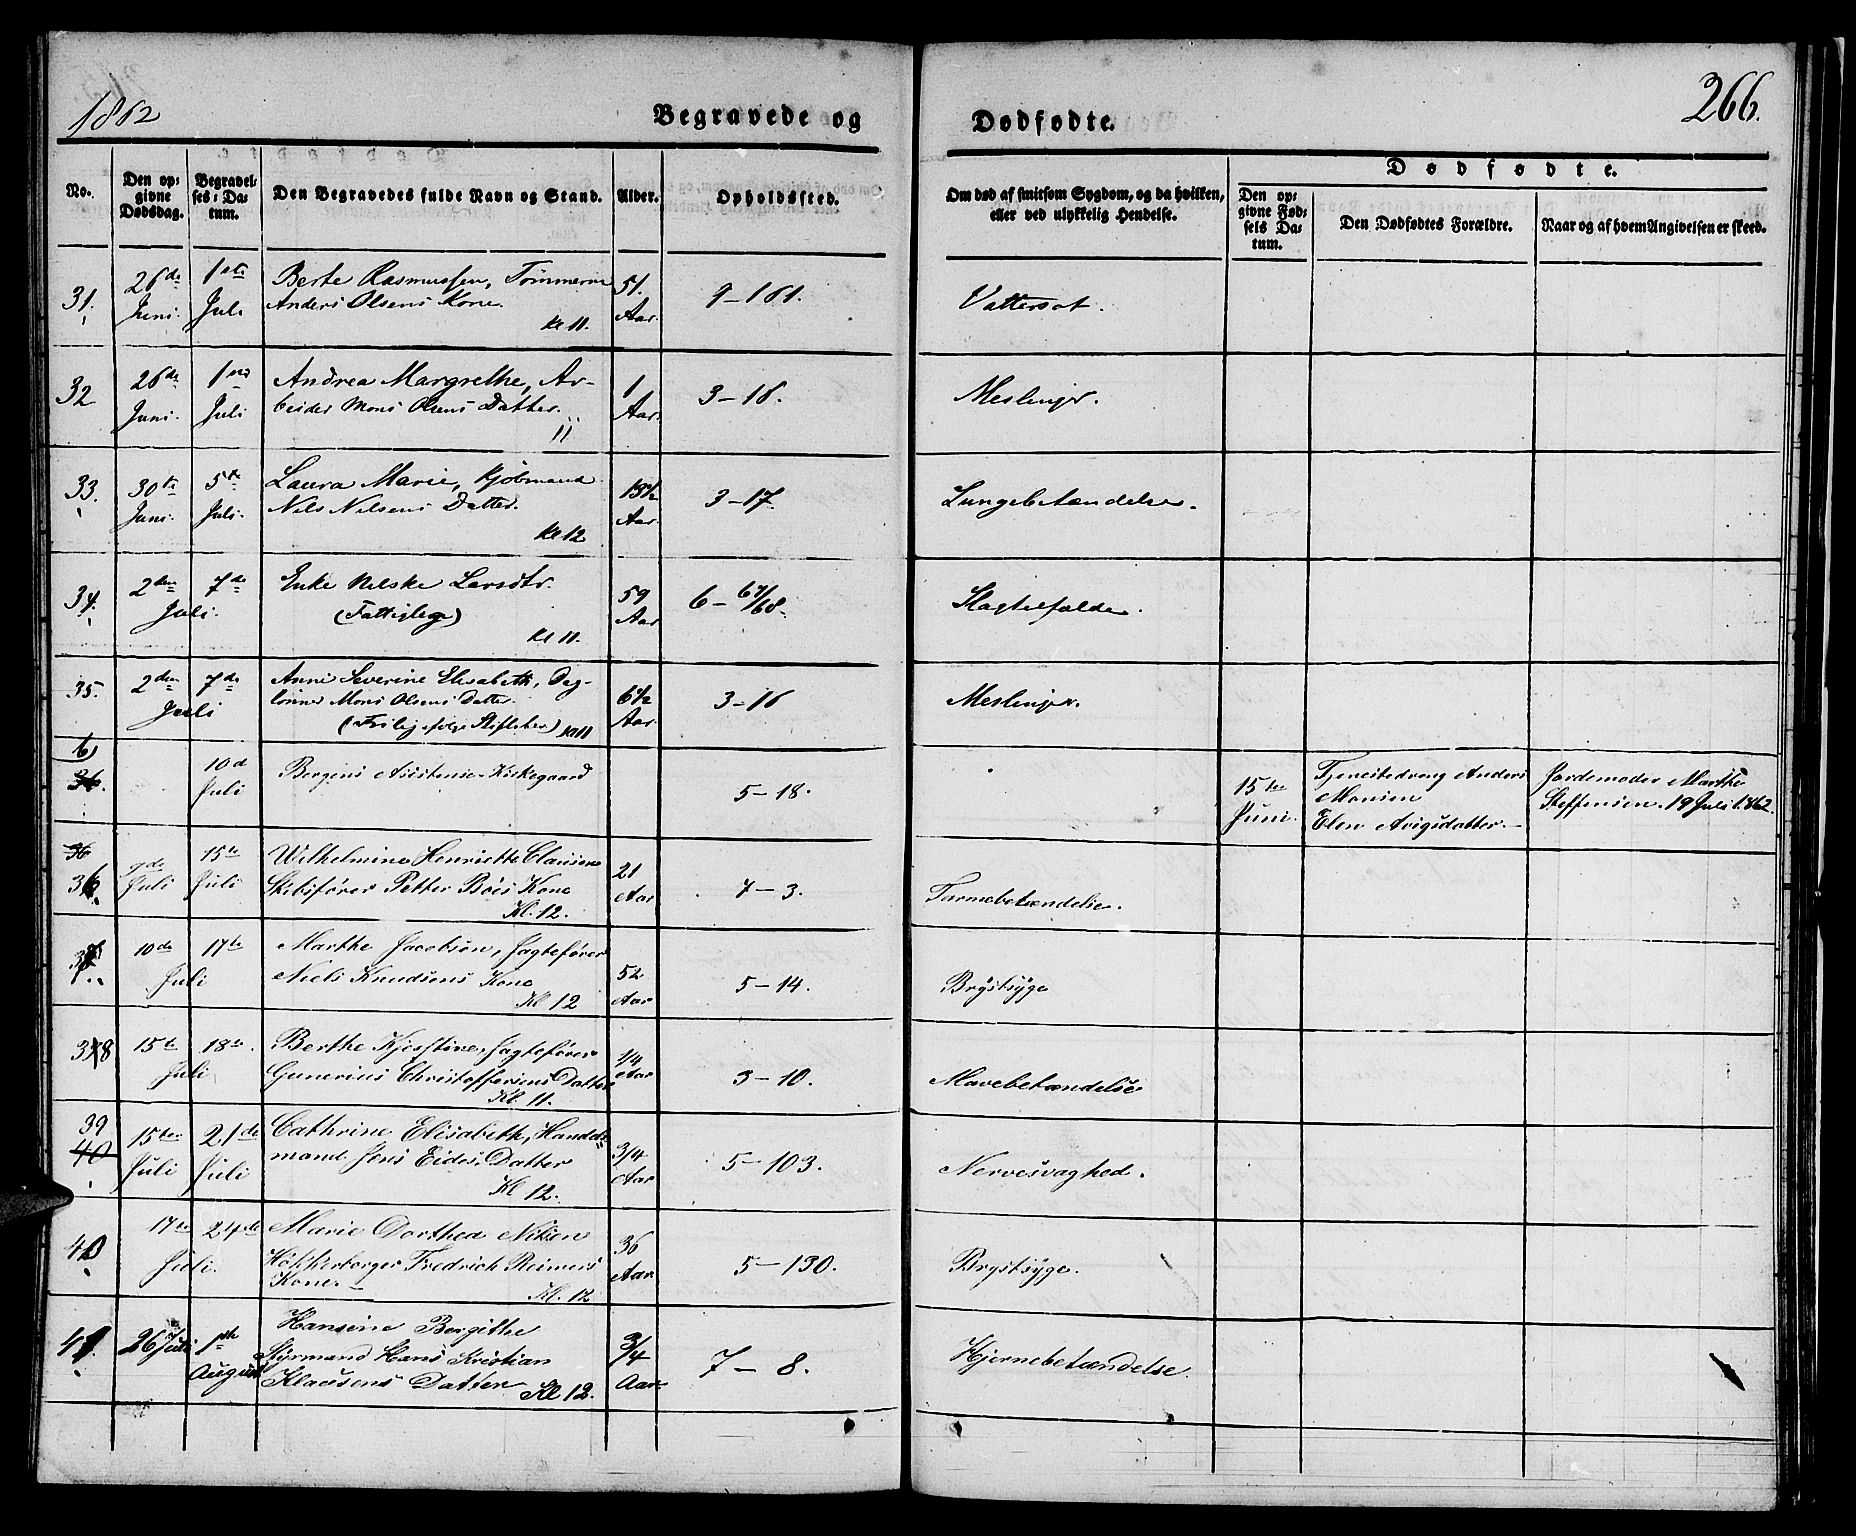 1862
Begravede og
Dødfødte.
266.
No.
Den opgivne Dødsdag.
Begravelses-Datum.
Den Begravedes fulde Navn og Stand.
Alder.
Opholdssted.
Om død af smitsom Sygdom, og da hvilken,
eller ved ulykkelig Hendelse.
Dødfødte.
Den opgivne Fødsels Datum.
Den Dødfødtes Forældre.
Naar og af hvem Angivelsen er skeed.
31. 26de Juni. 1ste Juli Berte Rasmussen, Tømmerm
Anders Olsens Kone.
Kl 11. 51. Aar. 9-161. Vattersot.
32 26de Juni. 1ste Juli Andrea Margrethe, Ar-
beider Mons Olsens Datter.
11 1 Aar. 3-18. Meslinger.
33. 30te Juni. 5te Juli. Laura Marie, Kjøbmand
Nils Nilsens Datter.
Kl 12 Aar. 3-17. Lungebetændelse.
34. 2den Juli. 7de Enke Nilske Larsdtr.
(Fattiglege)
Kl 11. 59 Aar 6-67/68. Slagtilfælde.
35. 2den Juli 7de Anne Severine Elisabeth, Dag-
lønner Mons Olsens Datter.
Kl 11 6 1/2 Aar. 3-16 Meslinger.
6
36. 10d Juli Bergens Assistense-Kirkegaard 5-18. 15te Juni. Tjenestedreng Anders
Monsen
Elen Avigsdatter. Jordemoder Marthe
Steffensen. 19 Juli 1862.
36
36. 9de Juli 15te Juli Wilhelmine Henriette Clausen
Skibsfører Petter Böes Kone
Kl. 12. 21 Aar 7-3. Tarmebetændelse.
37. 10de Juli 17te Marthe Jacobsen, Jagtefører
Niels Knudsens Kone
Kl 12 52 Aar 5-14. Brÿstsÿge
38 15te Juli 18te. Berthe Kjerstine, Jagtefører
Gunerius Christoffersens Datter
Kl. 11. 1/4 Aar 3-10. Mavebetændelse
39
40 15ten Juli 21de Juli Cathrine Elisabeth, Handels-
mand Jens Eides, Datter
Kl 12. 3/4 Aar 5-103. Nervesvaghed.
40 17te Juli. 24de Marie Dorthea Nilsen
Høkkerborger Fredrich Reimers
Kone
Kl. 12 36 Aar 5-130. Brystsyge.
41. 26 Juli 1ste August Hansine Bergithe
Styrmand Hans Kristian
Klausens Datter Kl 12. 3/4 Aar 7-8. Hjernebetændelse.